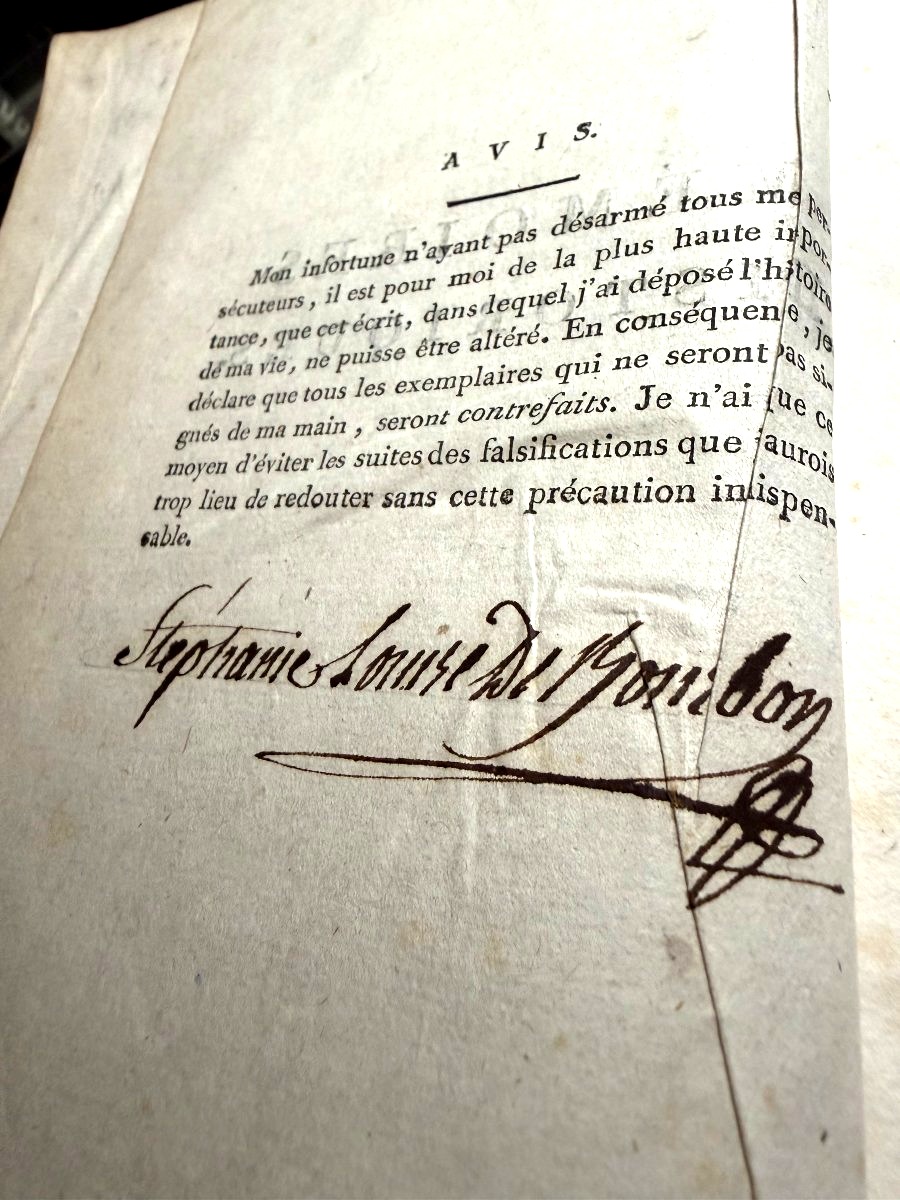 AVIS.
Mon infortune n'ayant pas désarmé tous me per-
sécuteurs, il est pour moi de la plus haute impor-
tance, que cet écrit, dans lequel j'ai déposé l'hitoire
de ma vie, ne puisse être altéré. En conséquene, je
déclare que tous les exemplaires qui ne seront pas si-
gnés de ma main, seront contrefaits. Je n'ai que ce
moyen d'éviter les suites des falsifications que j'aurois
trop lieu de redouter sans cette précaution indispen-
sable.
Stéphanie Louise De Bourbon